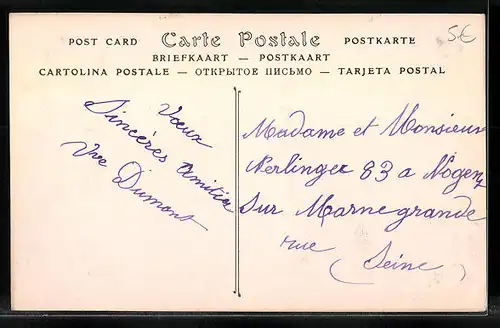 POST CARD Carte Postale POSTKARTE
BRIEFKAART — POSTKAART
CARTOLINA POSTALE — ОТКРЫТОЕ ПИСЬМО — TARJETA POSTAL
5€
Vœux
Sincères Amitiés
Vve Dumont
Madame et Monsieur
Nerlinger 83 a Nogent
Sur Marne grande
rue
(Seine)